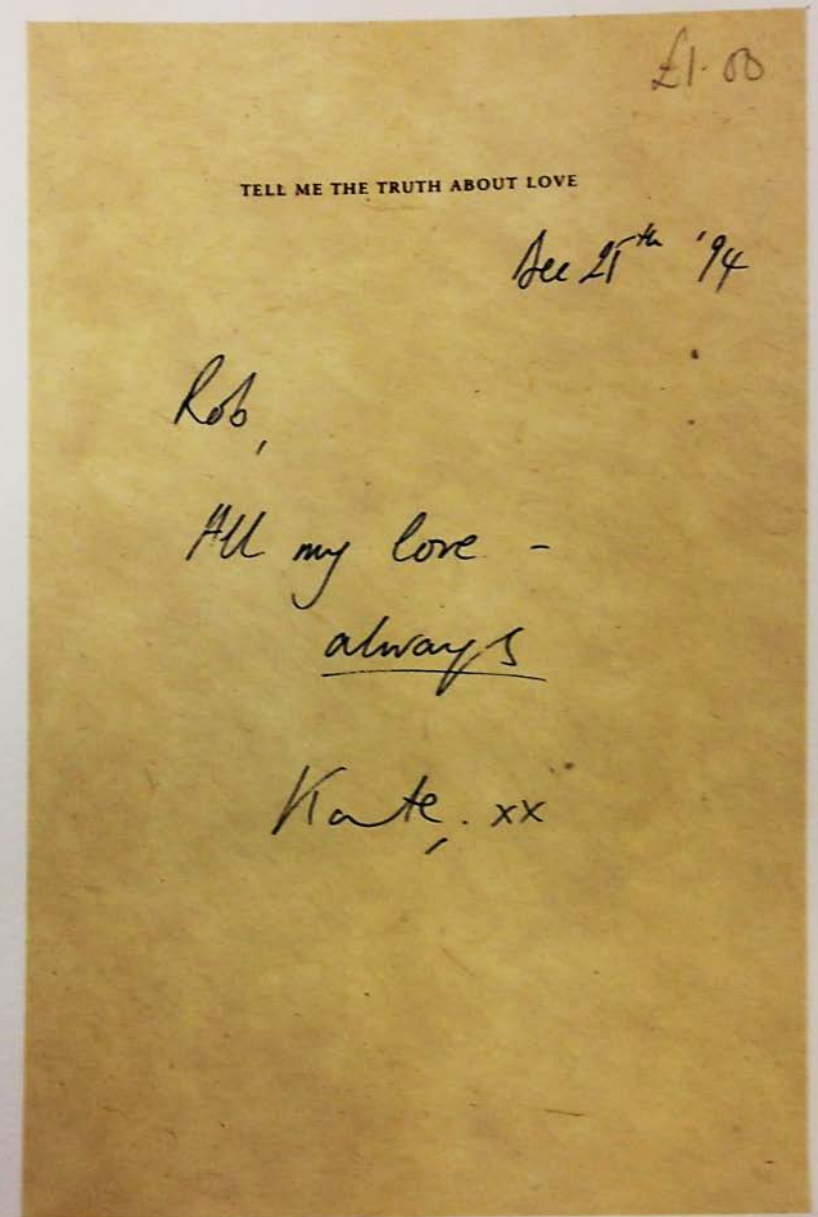 £1.00
TELL ME THE TRUTH ABOUT LOVE
Dec 25th '94
Rob,
All my love -
always
Kate, xx